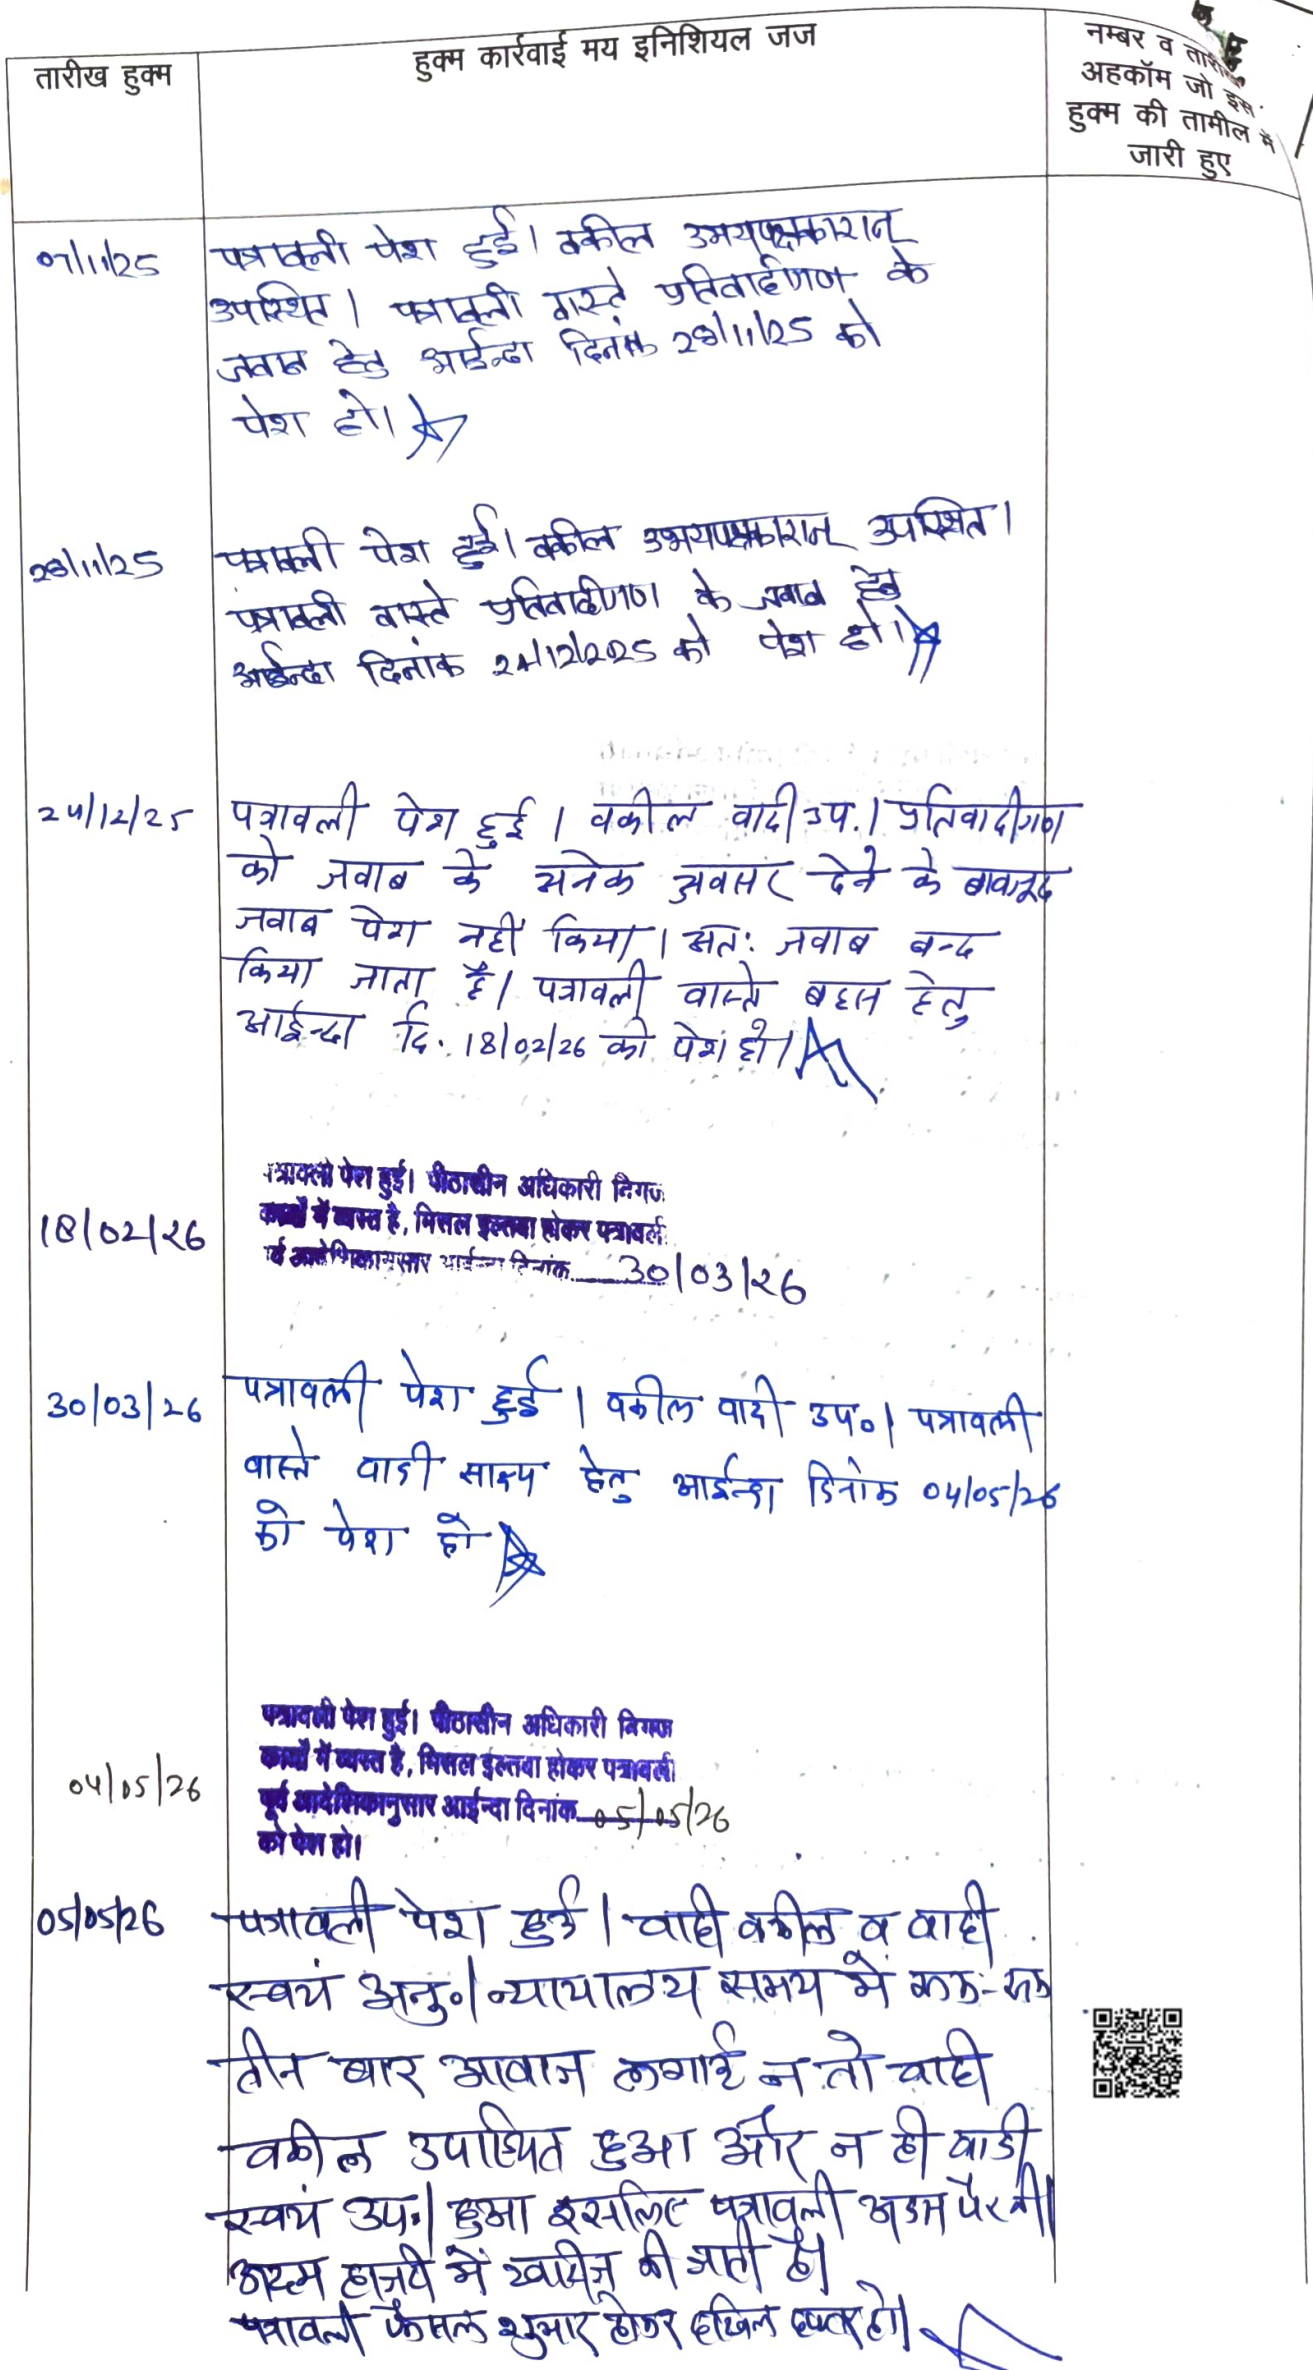 तारीख हुक्म
हुक्म कार्रवाई मय इनिशियल जज
नम्बर व तारीख
अहकॉम जो इस
हुक्म की तामील में
जारी हुए
07/11/25
पत्रावली पेश हुई। वकील उभयपक्षकारान्
उपस्थित। पत्रावली वास्ते प्रतिवादीगण के
जवाब हेतु आईन्दा दिनांक 28/11/25 को
पेश हो।
28/11/25
पत्रावली पेश हुई। वकील उभयपक्षकारान् उपस्थित।
पत्रावली वास्ते प्रतिवादीगण के जवाब हेतु
आईन्दा दिनांक 24/12/2025 को पेश हो।
24/12/25
पत्रावली पेश हुई। वकील वादी उप.। प्रतिवादीगण
को जवाब के अनेक अवसर देने के बावजूद
जवाब पेश नहीं किया। अतः जवाब बन्द
किया जाता है। पत्रावली वास्ते बहस हेतु
आईन्दा दि. 18/02/26 को पेश हो।
पत्रावली पेश हुई। पीठासीन अधिकारी निगम
18/02/26
कार्यो में व्यस्त है, मिसल इल्तवा होकर पत्रावली
पूर्व आदेशिकानुसार आईन्दा दिनांक 30/03/26
30/03/26
पत्रावली पेश हुई। वकील वादी उप०। पत्रावली
वास्ते वादी साक्ष्य हेतु आईन्दा दिनांक 04/05/26
को पेश हो
पत्रावली पेश हुई। पीठासीन अधिकारी निगम
कार्यो में व्यस्त है, मिसल इल्तवा होकर पत्रावली
04/05/26
पूर्व आदेशिकानुसार आईन्दा दिनांक 05/05/26
को पेश हो।
05/05/26
पत्रावली पेश हुई। वादी वकील व वादी
स्वयं अनु०। न्यायालय समय में रूक-रूक
तीन बार आवाज लगाई न तो वादी
वकील उपस्थित हुआ और न ही वादी
स्वयं उप.। हुआ इसलिए पत्रावली अदम पैरवी
अदम हाजरी में खारीज की जाती है।
पत्रावली फैसल शुमार होकर दाखिल दफ्तर हो।